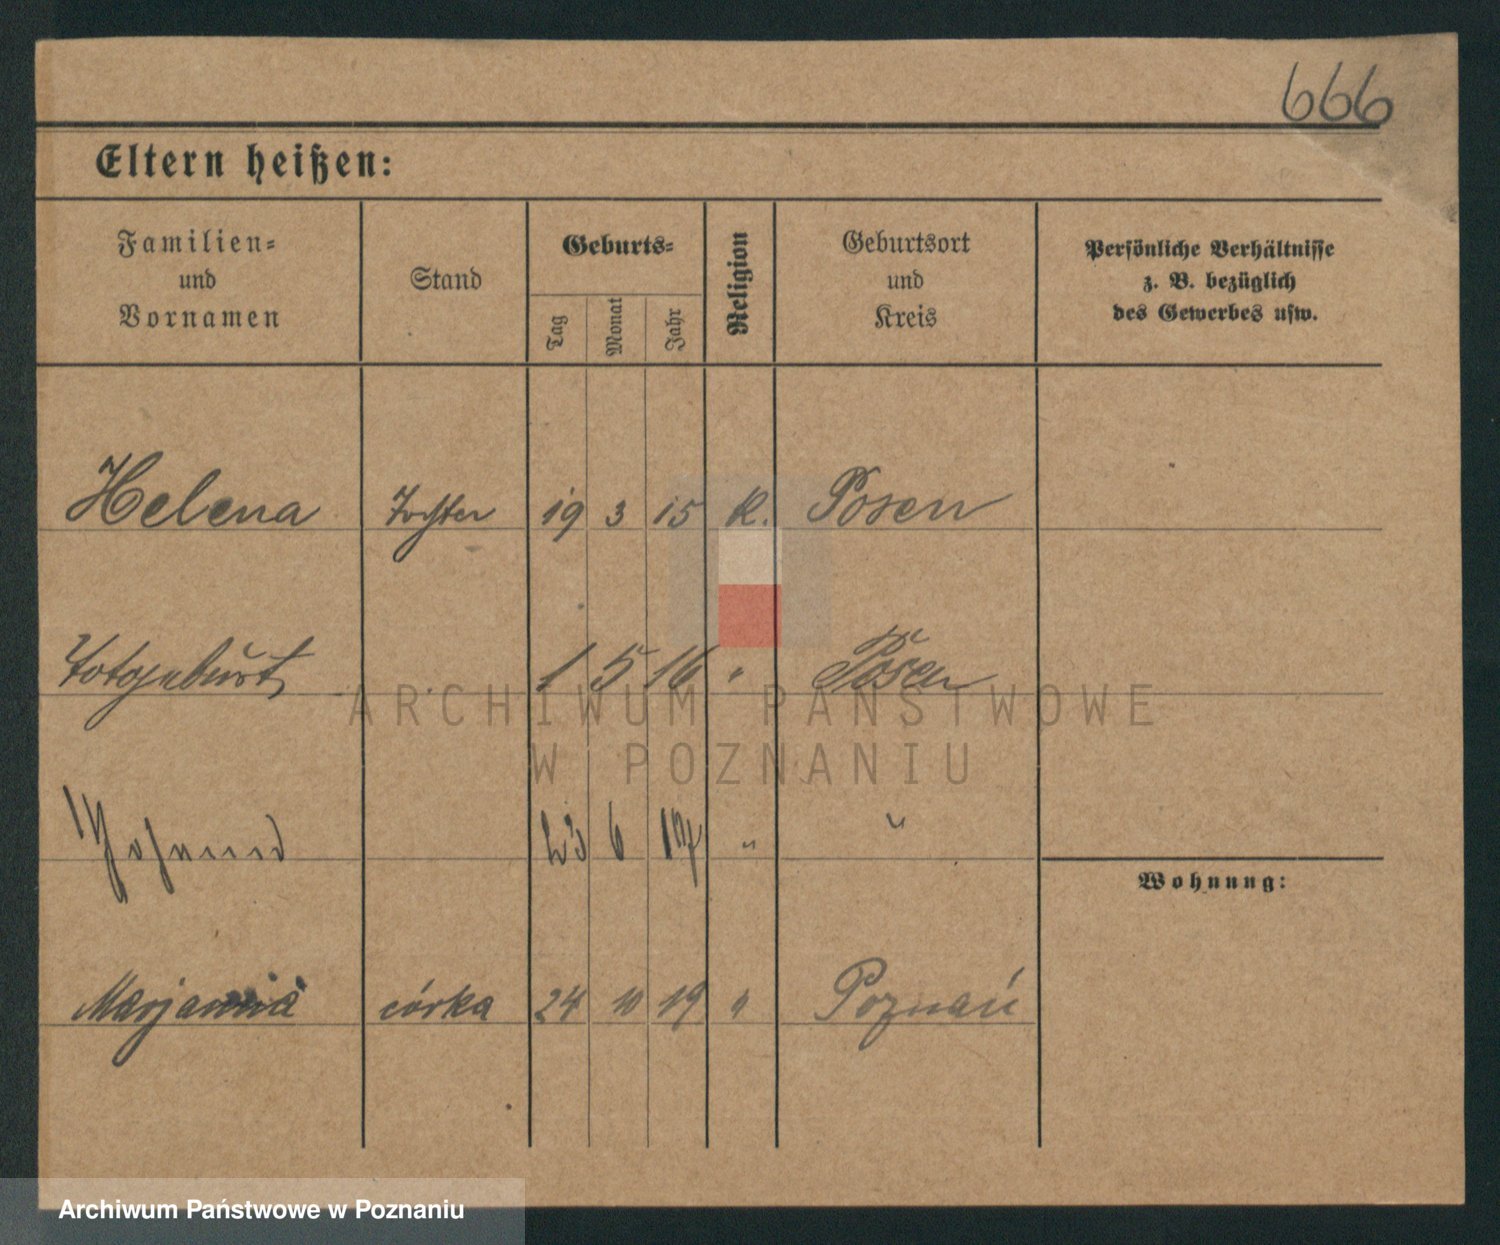 666
Eltern heißen:
Familien= und Vornamen
Stand
Geburts=
Tag Monat Jahr
Religion
Geburtsort und Kreis
Persönliche Verhältnisse z. B. bezüglich des Gewerbes usw.
Helena Tochter 19 3 15 K. Posen
Totgeburt 1 5 16 " Posen
23 6 17 " "
Wohnung:
Marjanna córka 24 10 19 " Poznań
ARCHIWUM PAŃSTWOWE
W POZNANIU
Archiwum Państwowe w Poznaniu